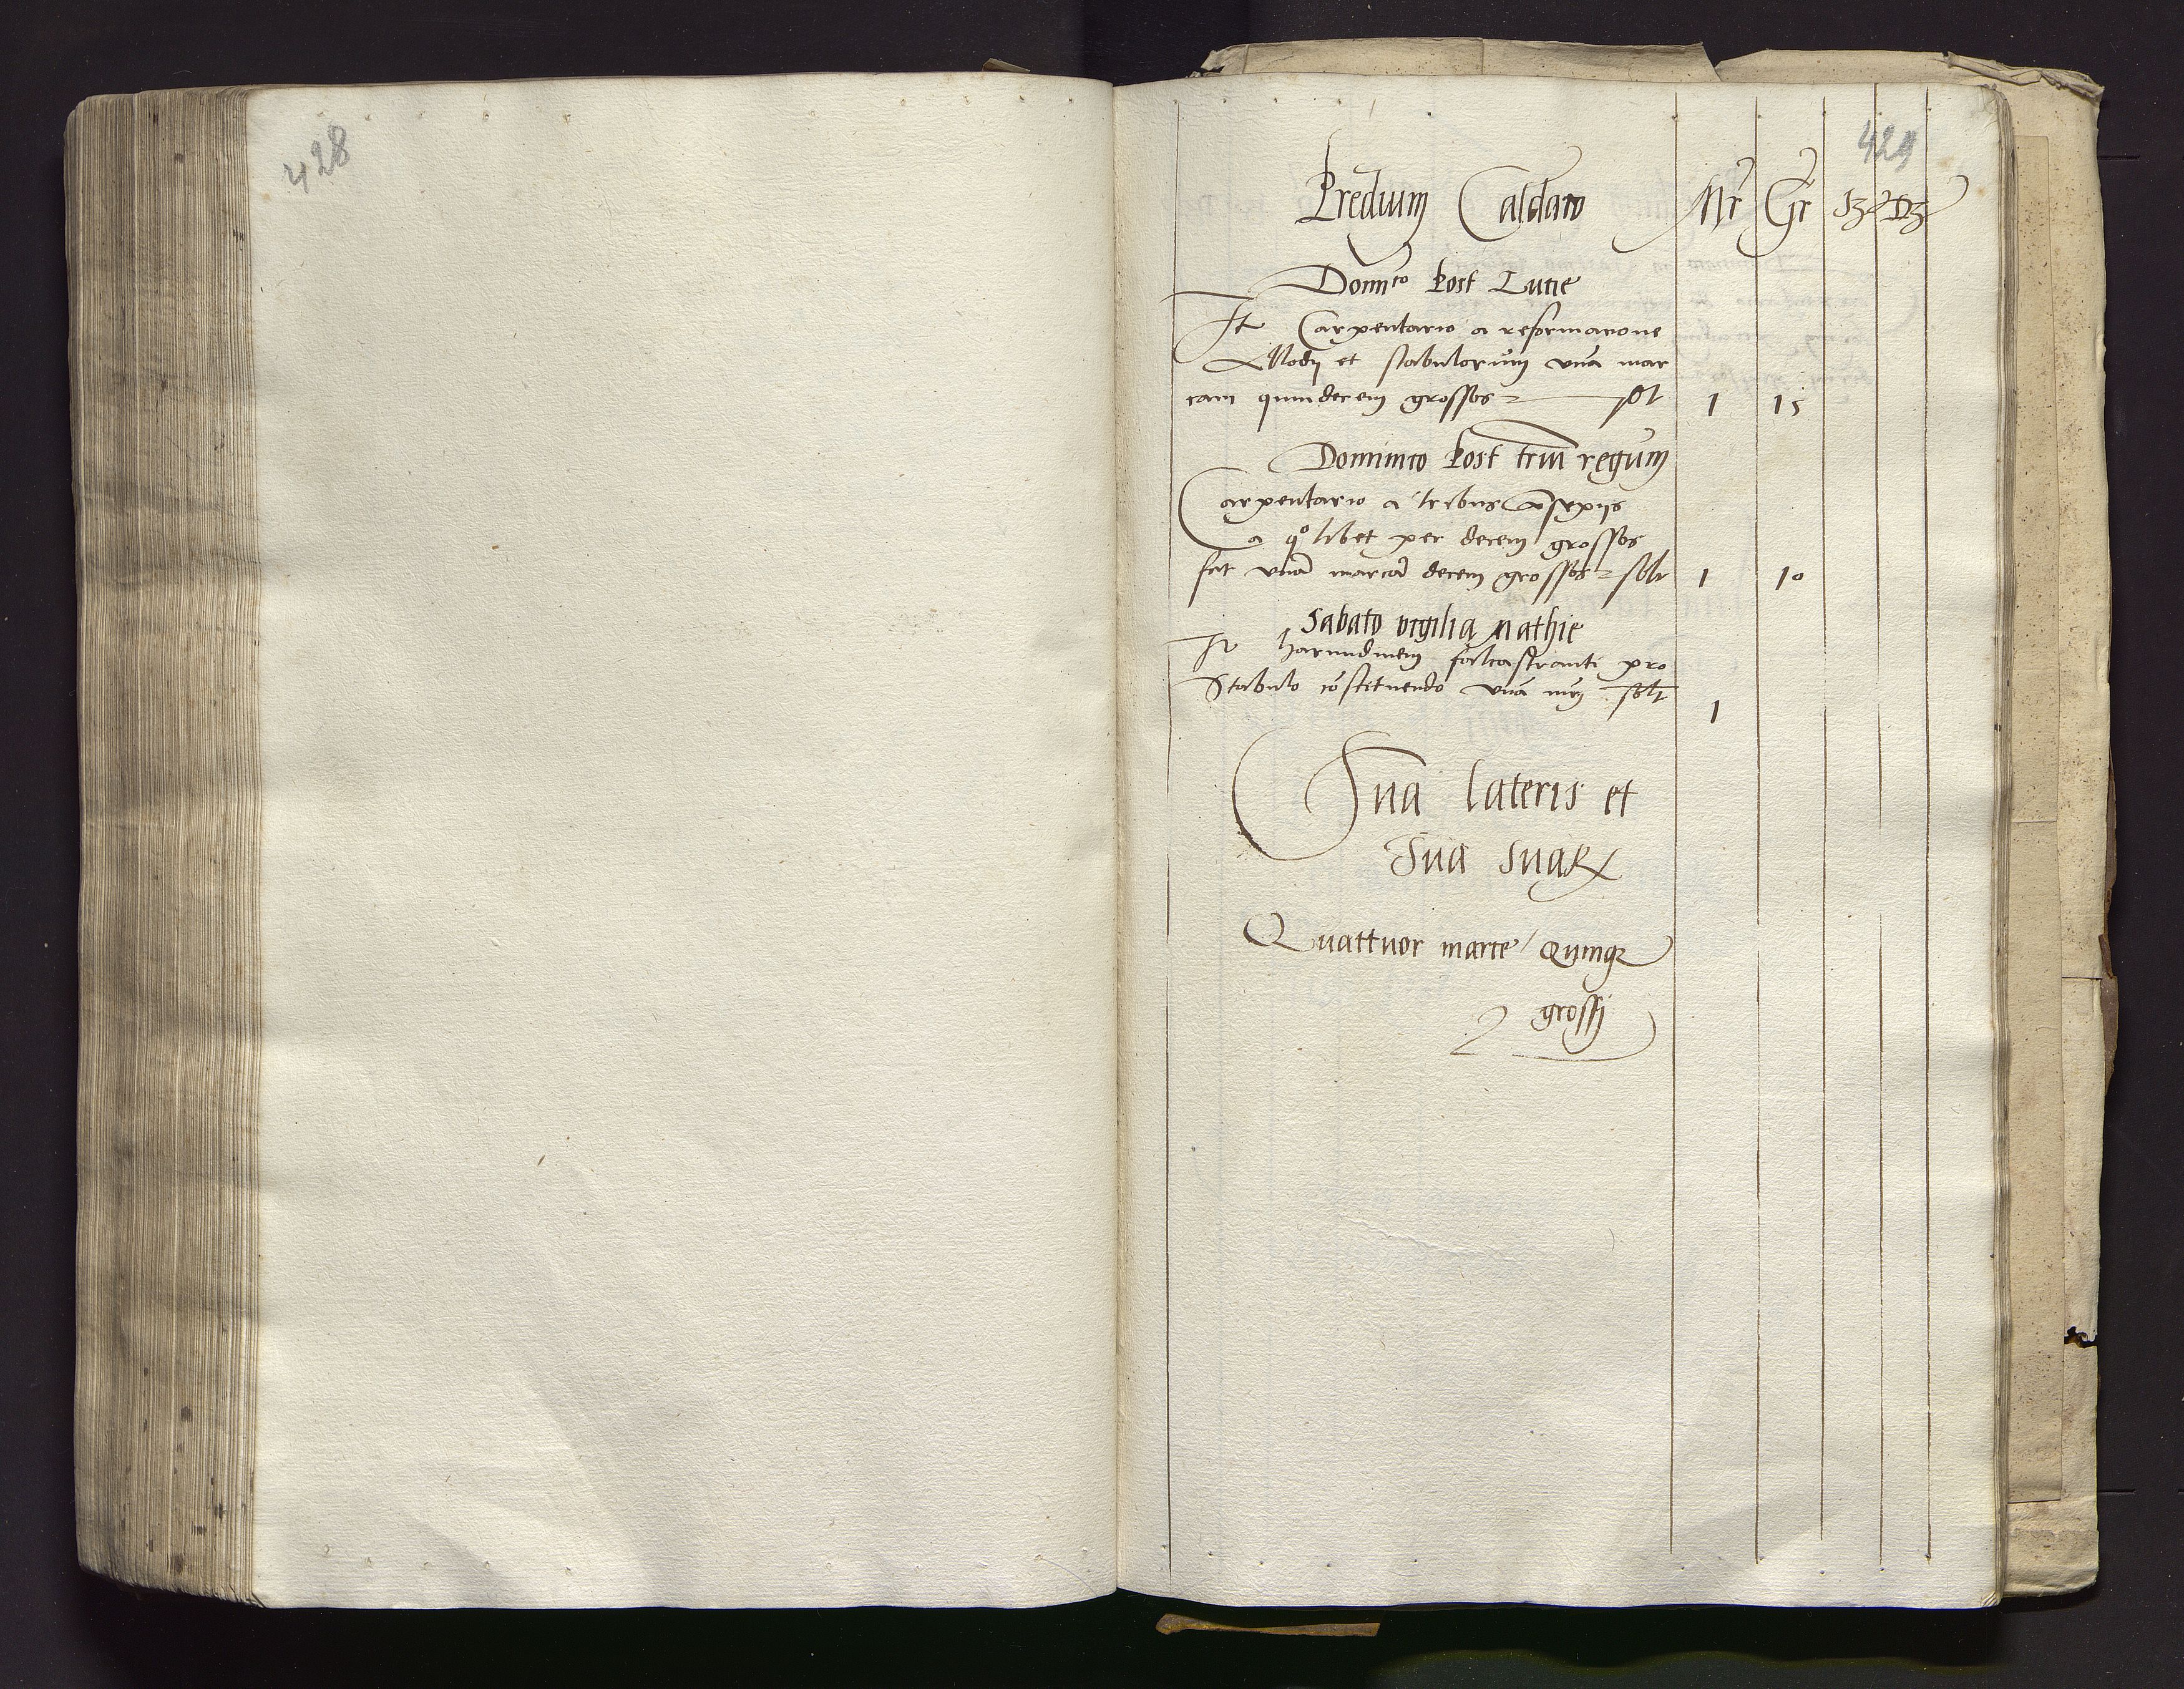 428
429
Predium Caldaro Mr Gr Sz Dz
Domico post Lucie
It Carpentario a reformacione
Allodij et stabulorum vna mar
cam quindecem grossos solt 1 15
Dominico post triu regum
Carpentario a tribus
a qolibet per decem grossos
fat vna marca decem grossos solt 1 10
Sabato vigilia Mathie
It harundinem falcastranti pro
Stabulo constituendo vna mrc solt 1
Sua lateris et
Sua suaR
Quattuor marce / Quinqz
grossi